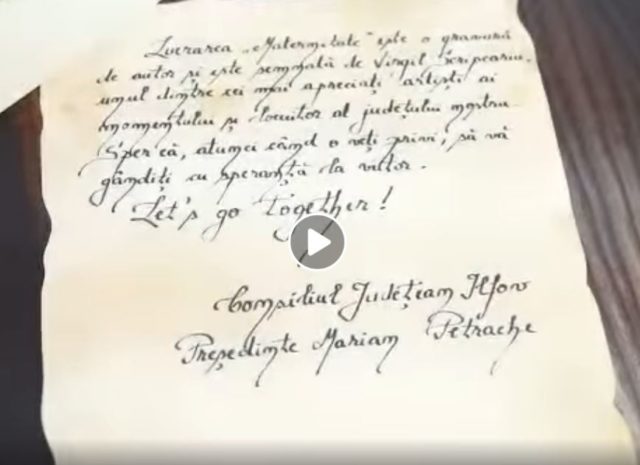 Lucrarea „Maternitate" este o gravură
de autor și este semnată de Virgil Scripcariu,
unul dintre cei mai apreciați artiști ai
momentului și locuitor al județului nostru
Sper că, atunci când o veți privi, să vă
gândiți cu speranță la viitor.
Let's go together!
Consiliul Județean Ilfov
Președinte Marian Petrache